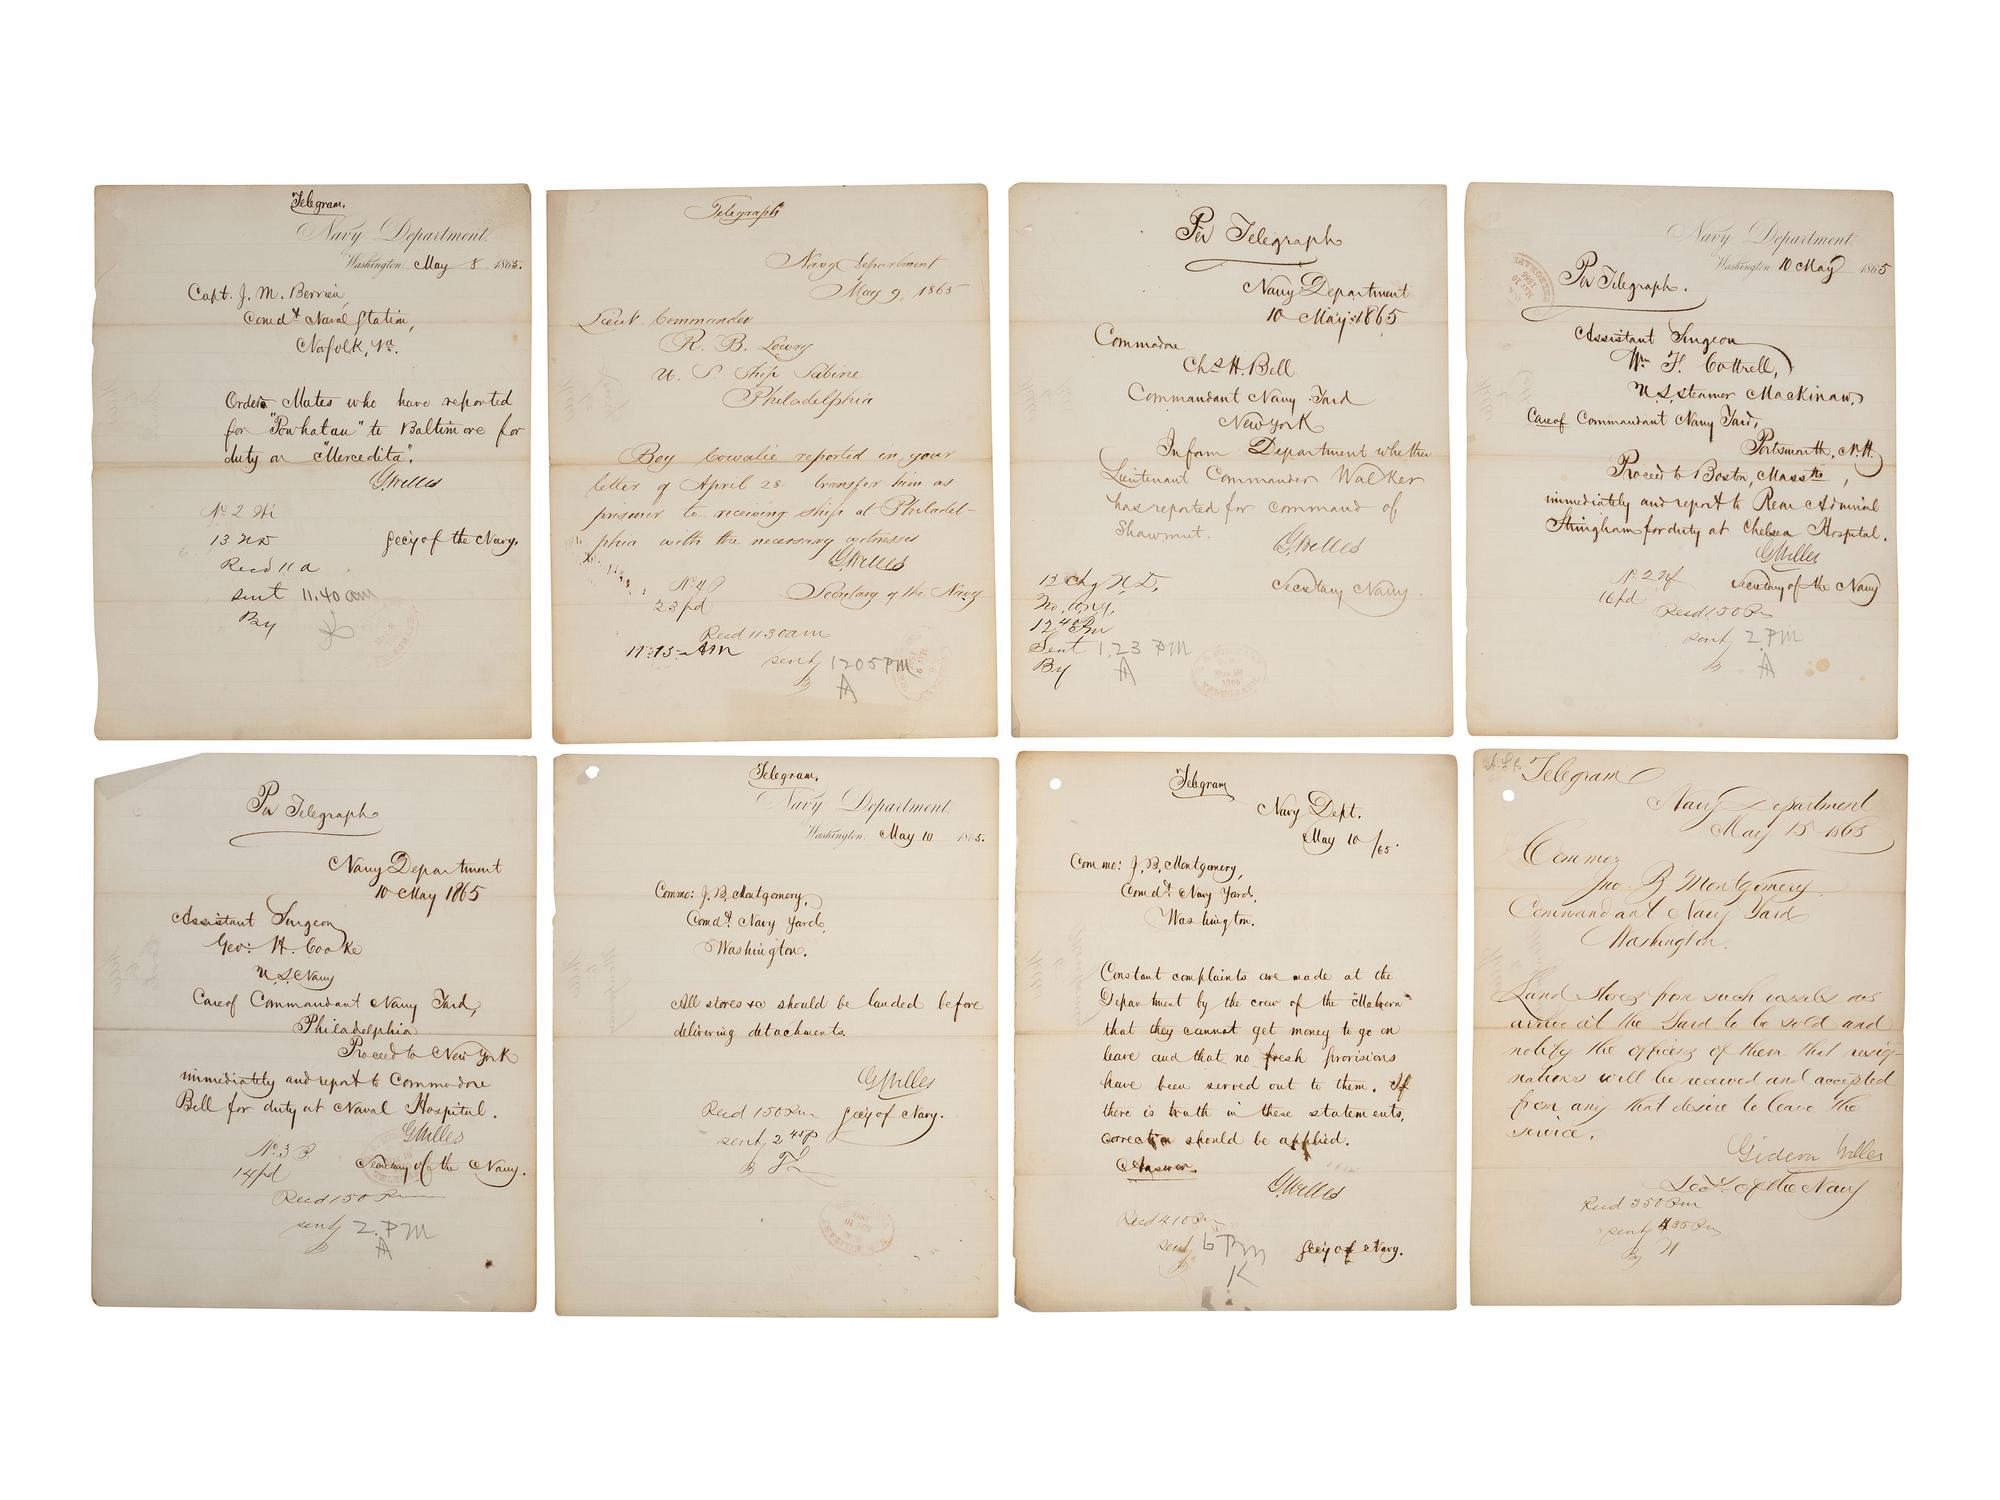 Telegram.
Navy Department.
Washington. May 8 1865.
Capt. J. M. Berrien,
Comdt Naval Station,
Norfolk, Va.
Order Mates who have reported
for "Powhatan" to Baltimore for
duty on "Mercedita".
G. Welles
Secy of the Navy.
No. 2
13
Recd 11 a
sent 11.40 am
By
Telegraph
Navy Department
May 9, 1865
Lieut Commander
R. B. Lowry
U. S. Ship Sabine
Philadelphia
Boy Cowalie reported in your
letter of April 28 transfer him as
prisoner to receiving ship at Philadel-
phia with the necessary witnesses
G. Welles
Secretary of the Navy
No. 4 P
23 pd
Recd 11 30 am
11:15 AM
sent 1205 PM
B
Per Telegraph
Navy Department
10 May 1865
Commodore
Chs H. Bell
Commandant Navy Yard
New York
Inform Department whether
Lieutenant Commander Walker
has reported for command of
Shawmut.
G. Welles
Secretary Navy.
13 chg N. D.
12 40 Pm
Sent 1.23 PM
By
Navy Department.
Washington 10 May 1865
Per Telegraph.
Assistant Surgeon
Wm F. Cottrell,
U.S. Steamer Mackinaw,
Care of Commandant Navy Yard,
Portsmouth, N.H.
Proceed to Boston, Massts,
immediately and report to Rear Admiral
Stringham for duty at Chelsea Hospital.
G Welles
Secretary of the Navy
No. 2
16 pd
Recd 1 50 Pm
sent 2 PM
B
Per Telegraph
Navy Department
10 May 1865
Assistant Surgeon
Geo: H. Cooke
U.S. Navy
Care of Commandant Navy Yard,
Philadelphia
Proceed to New York
immediately and report to Commodore
Bell for duty at Naval Hospital.
G Welles
Secretary of the Navy.
No. 3 P
14 pd
Recd 1 50 Pm
sent 2. PM
B
Telegram.
Navy Department.
Washington. May 10 1865.
Commo: J. B. Montgomery,
Comdt Navy Yard,
Washington.
All stores &c should be landed before
delivering detachments.
G Welles
Secy of Navy.
Recd 1 50 Pm
sent 2 45 P
B
Telegram
Navy Dept.
May 10/65.
Commo: J. B. Montgomery,
Comdt Navy Yard,
Washington.
Constant complaints are made at the
Department by the crew of the "Malvern"
that they cannot get money to go on
leave and that no fresh provisions
have been served out to them. If
there is truth in these statements,
correction should be applied.
Answer
G. Welles
Secy of Navy.
Recd 4 10 Pm
sent 6 Pm
K
Telegram
Navy Department
May 15 1865
Commo:
Jno. B Montgomery.
Commandant Navy Yard
Washington.
Land Stores from such vessels as
arrive at the Yard to be sold and
notify the officers of them that resig-
nations will be received and accepted
from any that desire to leave the
service.
Gideon Welles
Secy. of the Navy
Recd 3 50 Pm
sent 4 35 Pm
By H